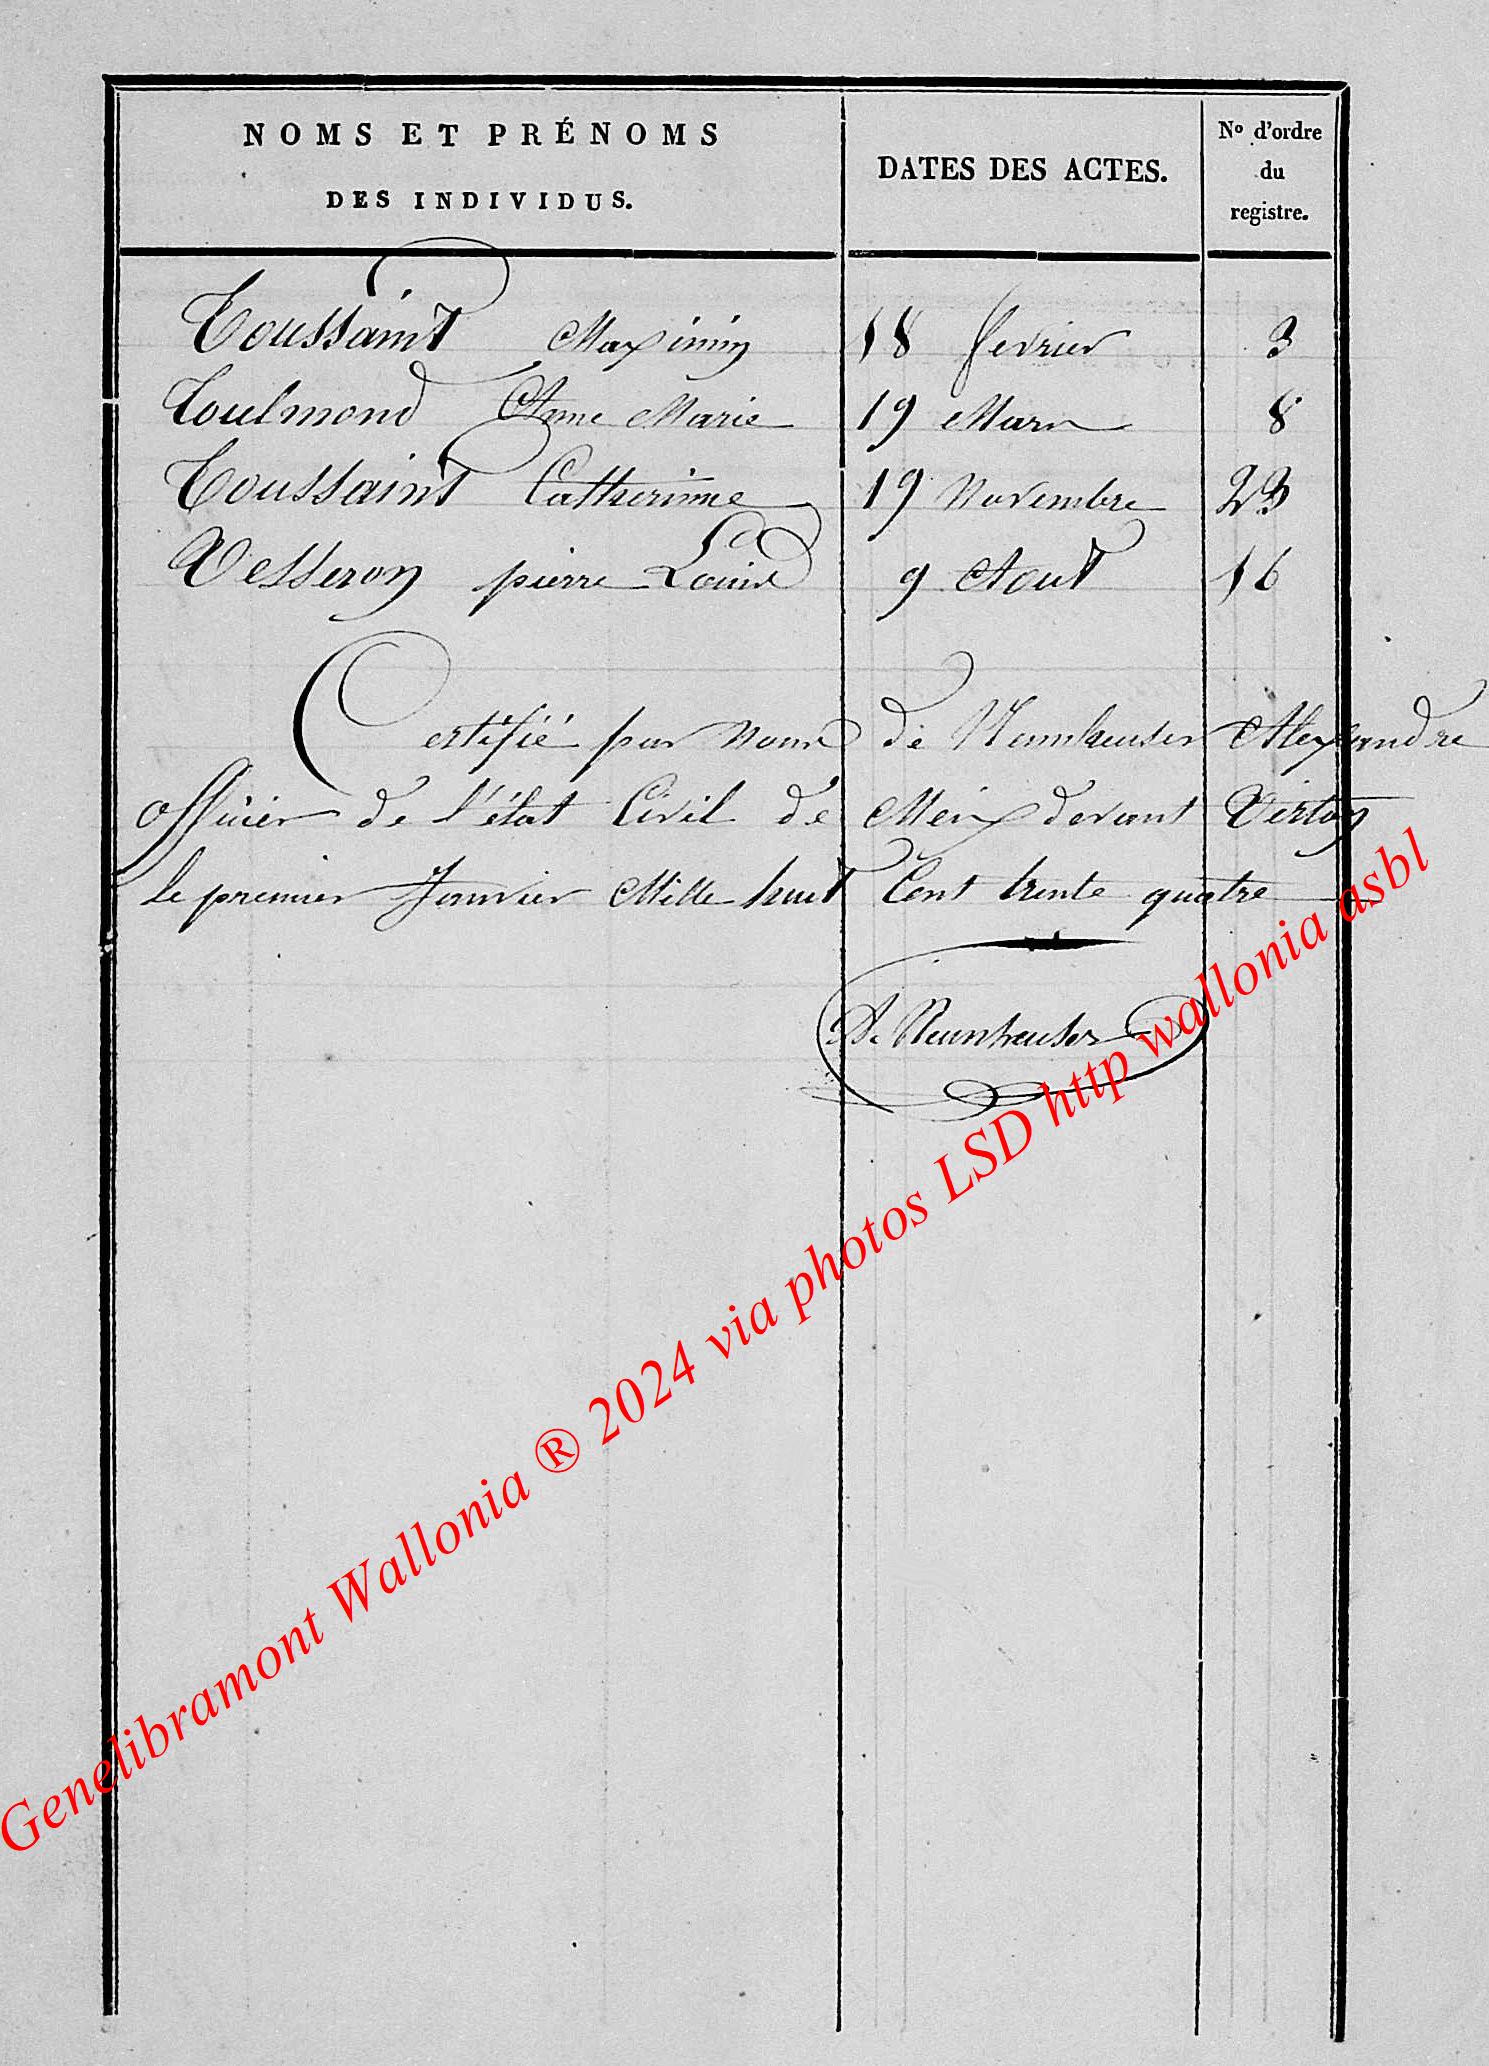 NOMS ET PRÉNOMS
DES INDIVIDUS.
DATES DES ACTES.
Nº d'ordre
du
registre.
Toussaint Maximin 18 fevrier 3
Toulmond Anne Marie 19 Mars 8
Toussaint Catherinne 19 Novembre 23
Vesseron pierre Louis 9 Aout 16
Certifié par nous de Neunheuser Alexandre
officier de l'état Civil de Meix devant Virton
le premier Janvier Mille huit Cent trente quatre
A. Neunheuser
Genelibramont Wallonia ® 2024 via photos LSD http wallonia asbl